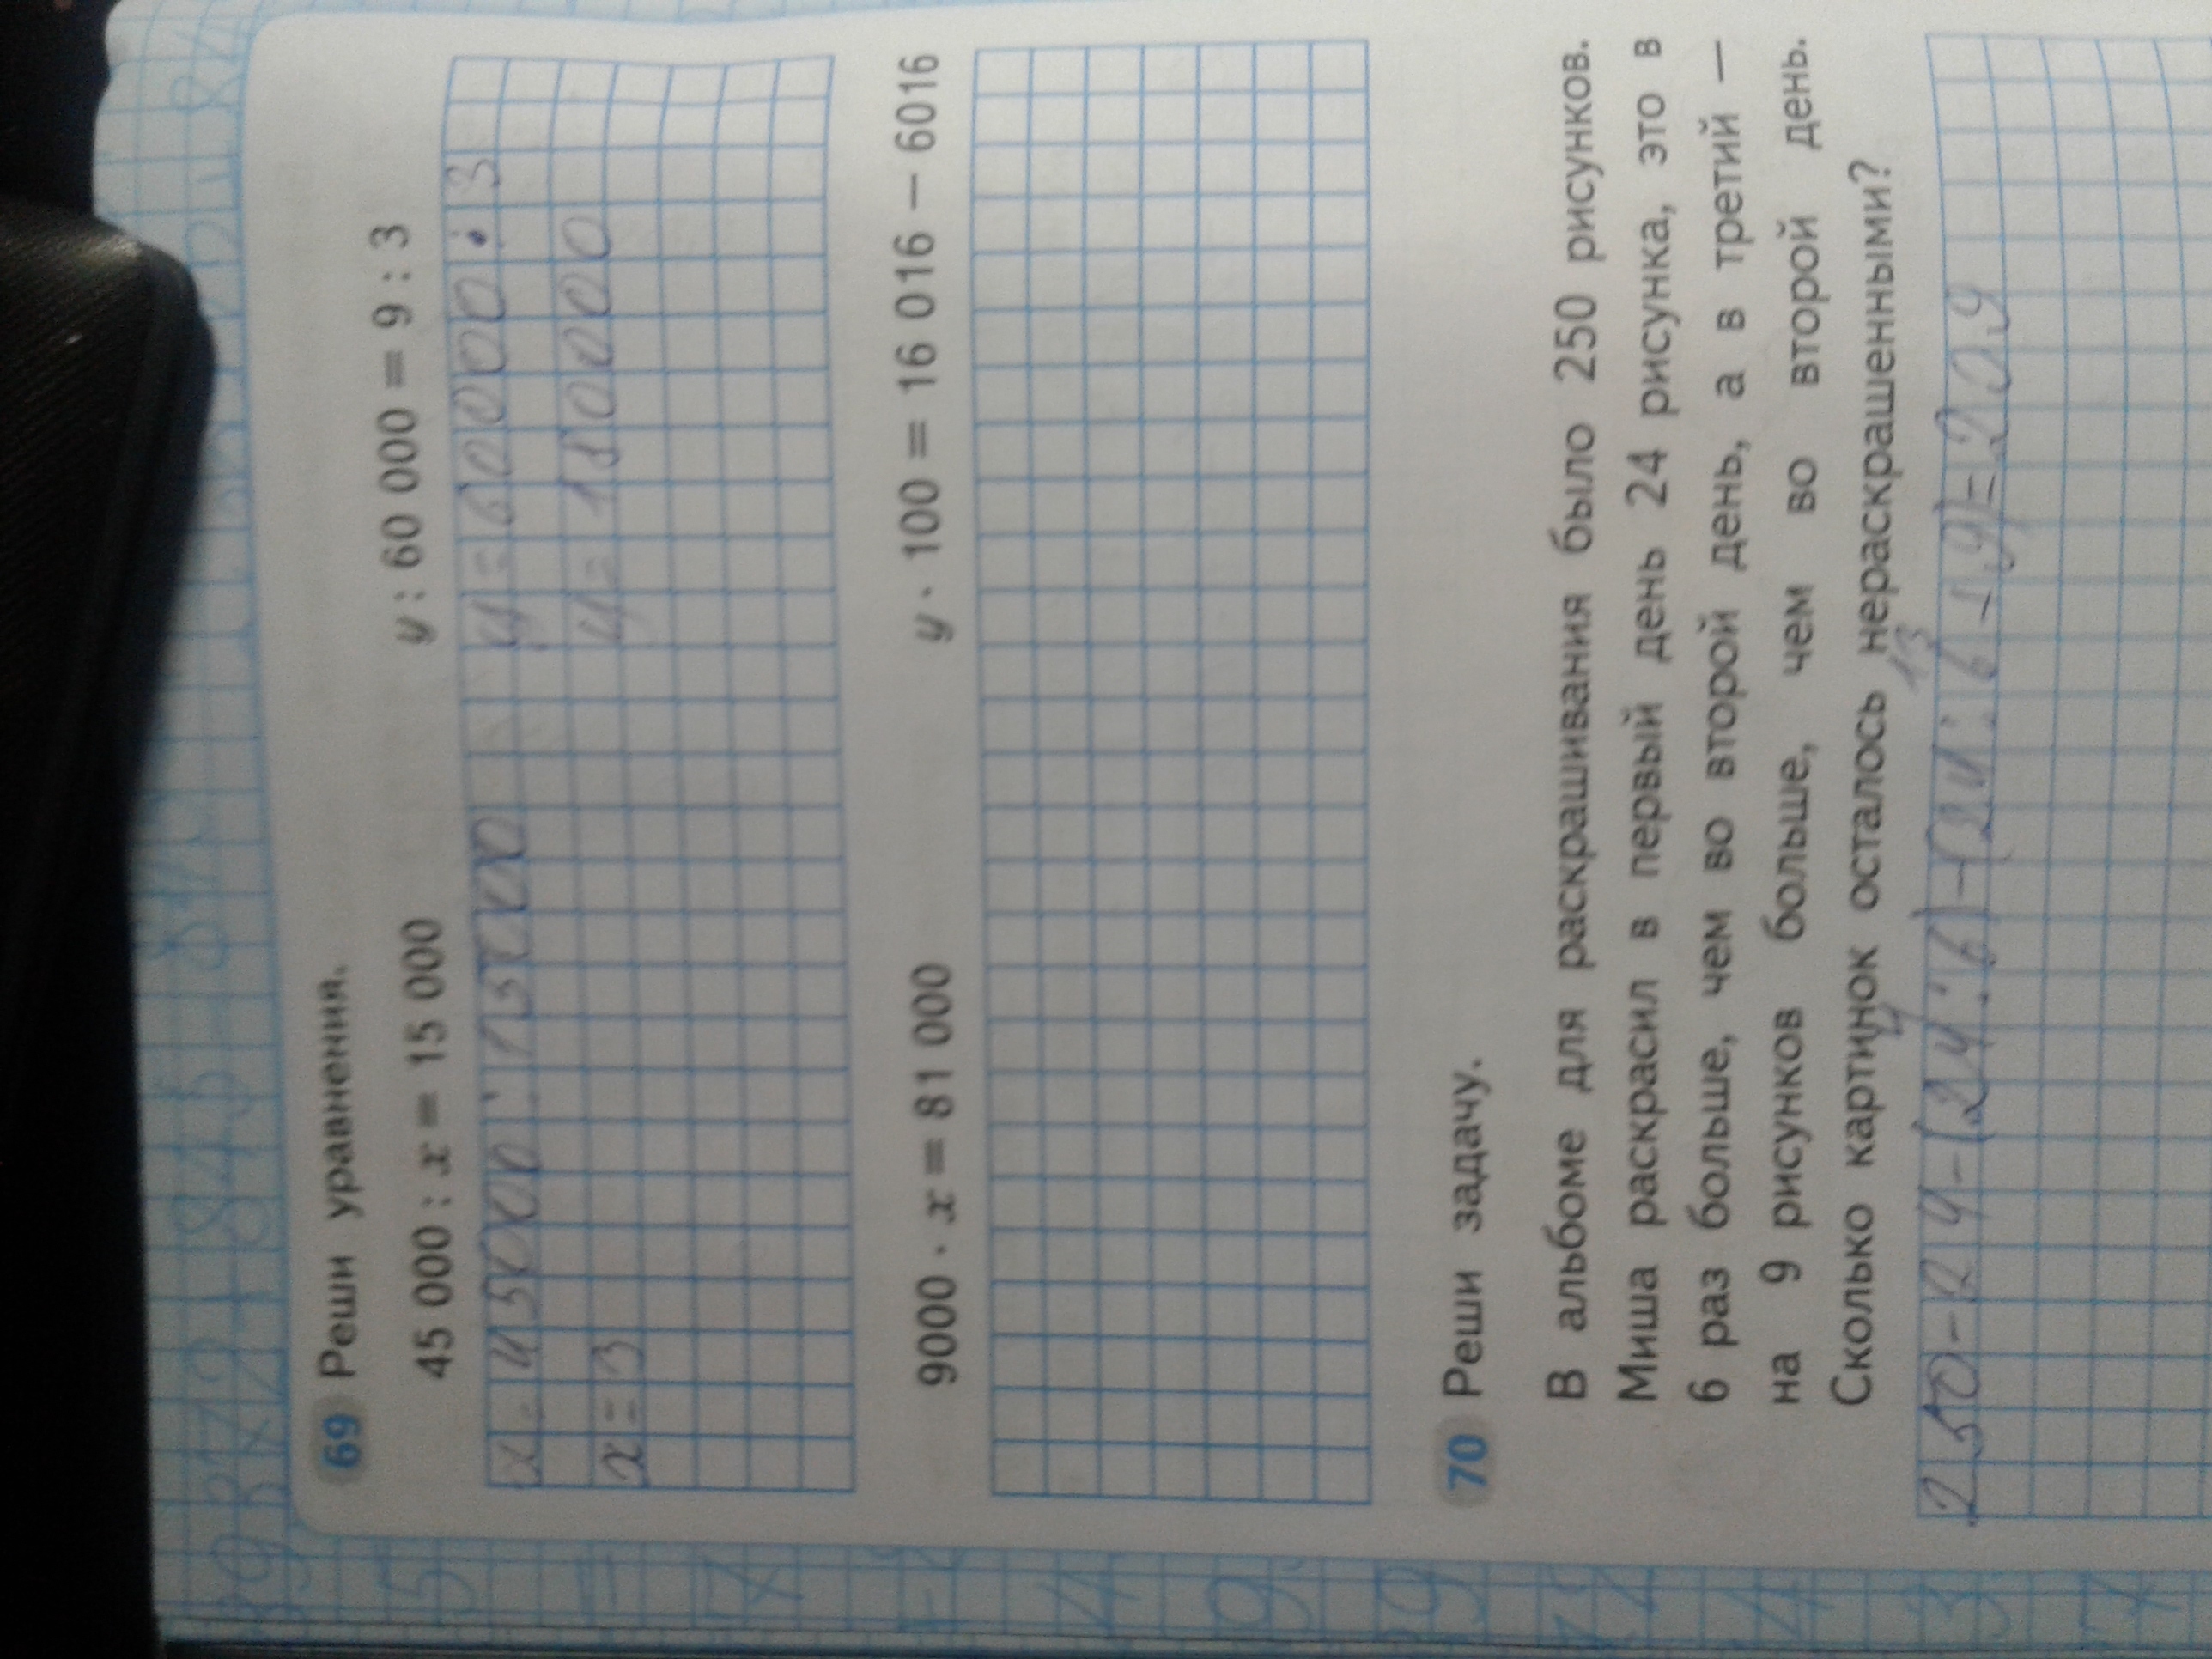 69 Реши уравнения.
45 000 : x = 15 000 y : 60 000 = 9 : 3
x = 45000 : 15000 y = 60000 : 3
x = 3 y = 180000
9000 · x = 81 000 y · 100 = 16 016 − 6016
70 Реши задачу.
В альбоме для раскрашивания было 250 рисунков.
Миша раскрасил в первый день 24 рисунка, это в
6 раз больше, чем во второй день, а в третий —
на 9 рисунков больше, чем во второй день.
Сколько картинок осталось нераскрашенными?
4 13
250-24-(24:6)-(24:6+9)=209